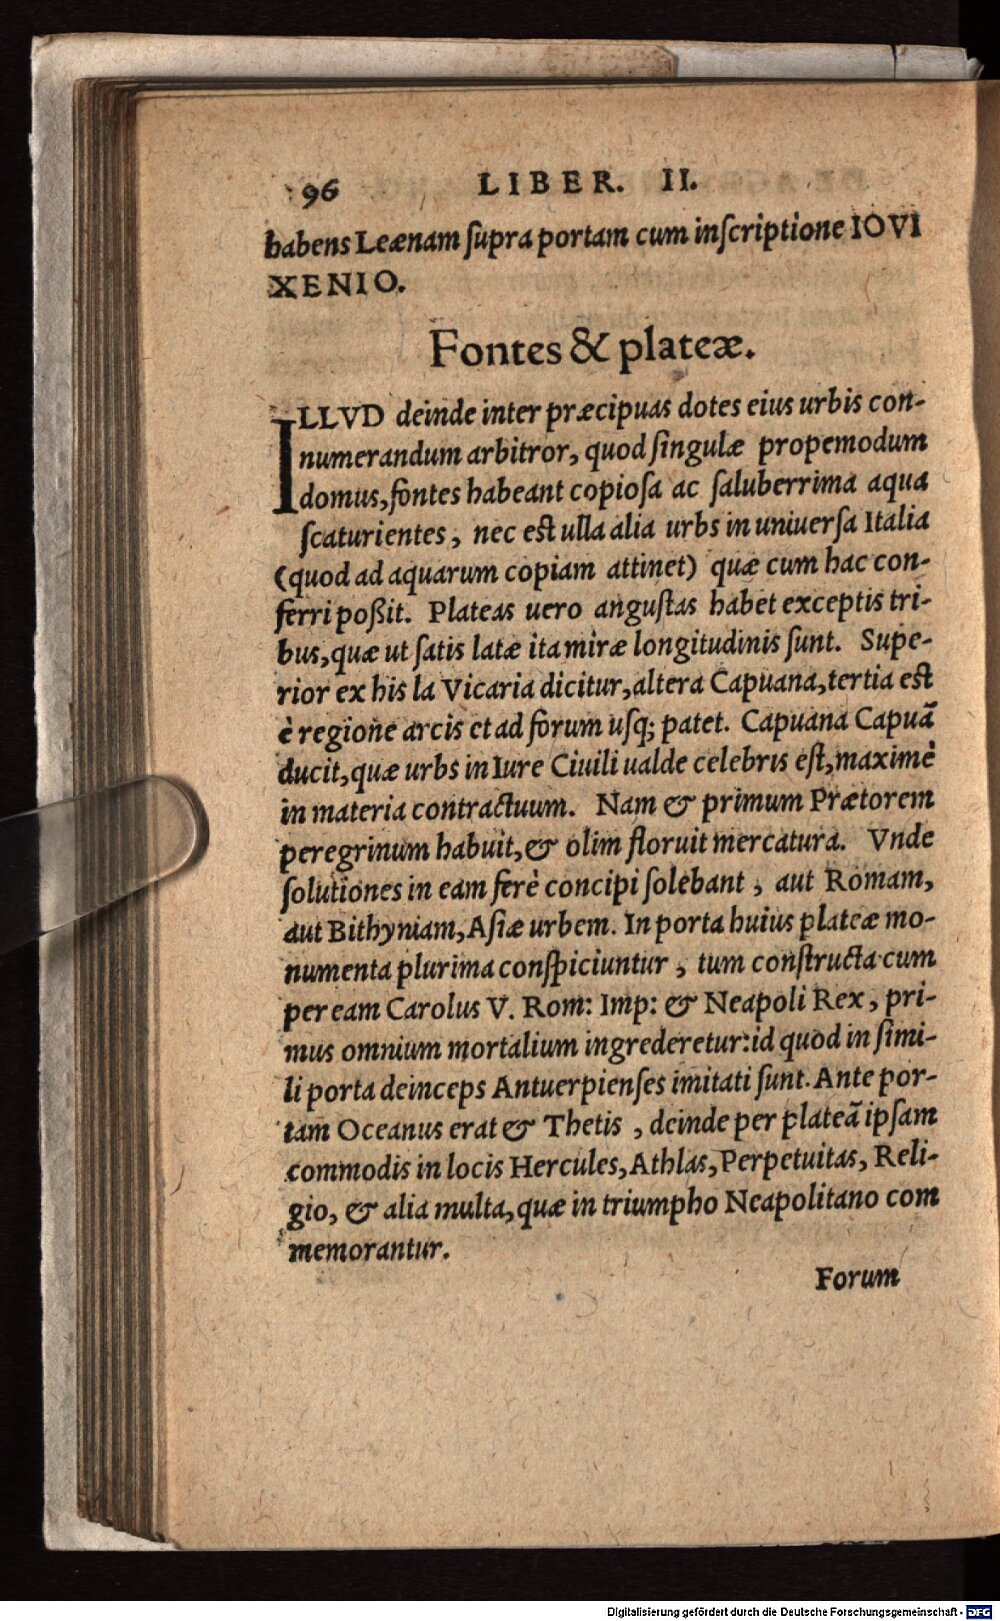 96 LIBER. II.
habens Leænam ſupra portam cum inſcriptione IOVI
XENIO.
Fontes & plateæ.
ILLVD deinde inter præcipuas dotes eius urbis con-
numerandum arbitror, quod ſingulæ propemodum
domus, fontes habeant copioſa ac ſaluberrima aqua
ſcaturientes, nec eſt ulla alia urbs in uniuerſa Italia
(quod ad aquarum copiam attinet) quæ cum hac con-
ferri poßit. Plateas uero anguſtas habet exceptis tri-
bus, quæ ut ſatis latæ ita miræ longitudinis ſunt. Supe-
rior ex his la Vicaria dicitur, altera Capuana, tertia eſt
è regione arcis et ad forum uſq; patet. Capuana Capuã
ducit, quæ urbs in Iure Ciuili ualde celebris eſt, maximè
in materia contractuum. Nam & primum Prætorem
peregrinum habuit, & olim floruit mercatura. Vnde
ſolutiones in eam ferè concipi ſolebant, aut Romam,
aut Bithyniam, Aſiæ urbem. In porta huius plateæ mo-
numenta plurima conſpiciuntur, tum conſtructa cum
per eam Carolus V. Rom: Imp: & Neapoli Rex, pri-
mus omnium mortalium ingrederetur: id quod in ſimi-
li porta deinceps Antuerpienſes imitati ſunt. Ante por-
tam Oceanus erat & Thetis, deinde per plateã ipſam
commodis in locis Hercules, Athlas, Perpetuitas, Reli-
gio, & alia multa, quæ in triumpho Neapolitano com
memorantur.
Forum
Digitalisierung gefördert durch die Deutsche Forschungsgemeinschaft - DFG